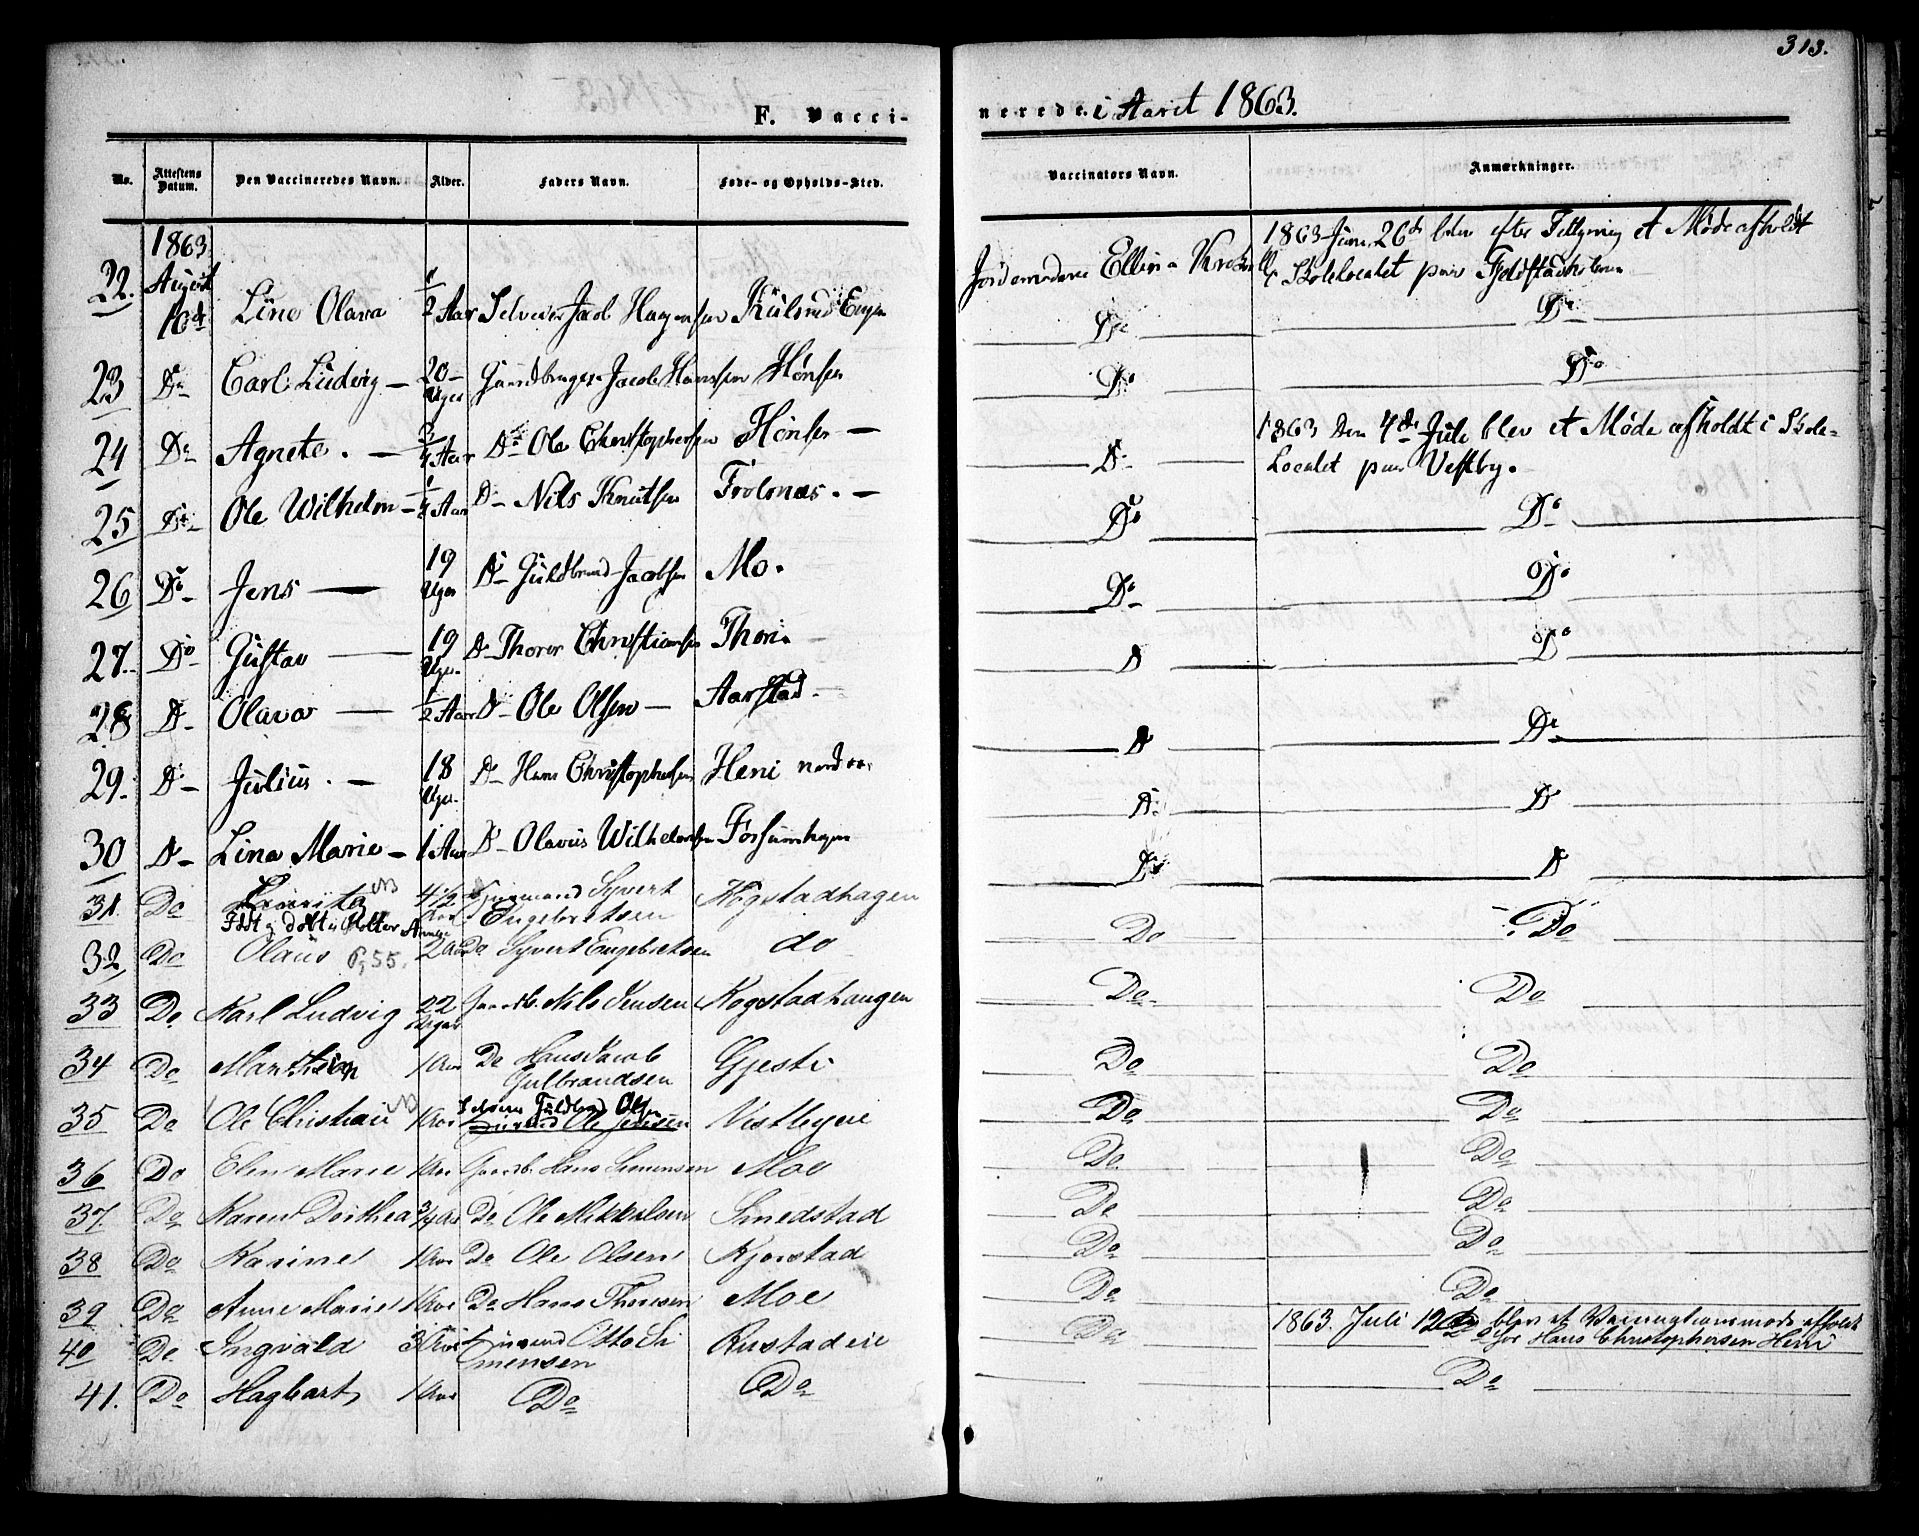 313.
F. Vacci-
nerede. i Aaret 1863.
No.
Attestens Datum.
Den Vaccineredes Navn.
Alder.
Faders Navn.
Føde- og Opholds-Sted.
Vaccinators Navn.
Anmærkninger.
22. 1863 August 10de Line Olava 1/2 Aar Selveier Jacob Hagensen
Jordemoder Ellina
1863 Juni 26de blev efter et Møde afholdt
i Skolelocalet paa
23 Do Carl Ludvig — 20 Uger Gaardbruger Jacob Hansen Hønsen
Do Do
24 Do Agnete. — 3/4 Aar Do Ole Christophersen Hønsen —
Do Do
25 Do Ole Wilhelm — 1/4 Aar Do Nils Knutsen —
Do 1863 den 4de Juli blev et Møde afholdt i Skole-
Localet paa Vestby.
26 Do Jens — 19 Uger Do Guldbrand Jacobsen Mo.
Do Do
27. Do Gustav — 19 Uger Do Thorer Christiansen
Do Do
28 Do Olava — 1/2 Aar Do Ole Olsen — Aarstad —
D Do
29. Do Julius. — 18 Uger. Do Hans Christophersen Heni nordre
D Do
30 Do Lina Marie — 1 Aar Do Olavus Wilhelmsen
Do D
31. Do NB 4 1/2 Aar Syvert Engebretsen Kogstadhagen
Do D
Født og døbt i Holter
32 Do Olaus P. 55. 2 Aar Do Syvert Engebretsen do
Do Do
33 Do Karl Ludvig 22 Uger Gaardb. Nils Jensen Kogstadhaugen
Do Do
34 Do 1 Aar Do Hans Jacob Gulbrandsen Gjesti
Do Do
35 Do Ole Christian NB 1 Aar Selveier Guldbrand Olsen
Do Do
36 Do Elen Marie 1 Aar Gaardb. Hans Simensen Moe
Do Do
37. Do Karen Dorthea 3/4 Aar Do Ole Mikkelsen Smedstad
Do Do
38 Do Karine 1 Aar Do Ole Olsen Kjorstad
Do Do
39 Do Anne Marie 1 Aar Do Hans Thoresen Moe
Do Do
40 Do Ingvald 3 Aar Otto Simensen Rustadeie
Do 1863. Juli 12te blev et Vaccinationsmøde afholdt
hos Hans Christophersen Heni
41. Do Hagbart 1 Aar Do Do
Do